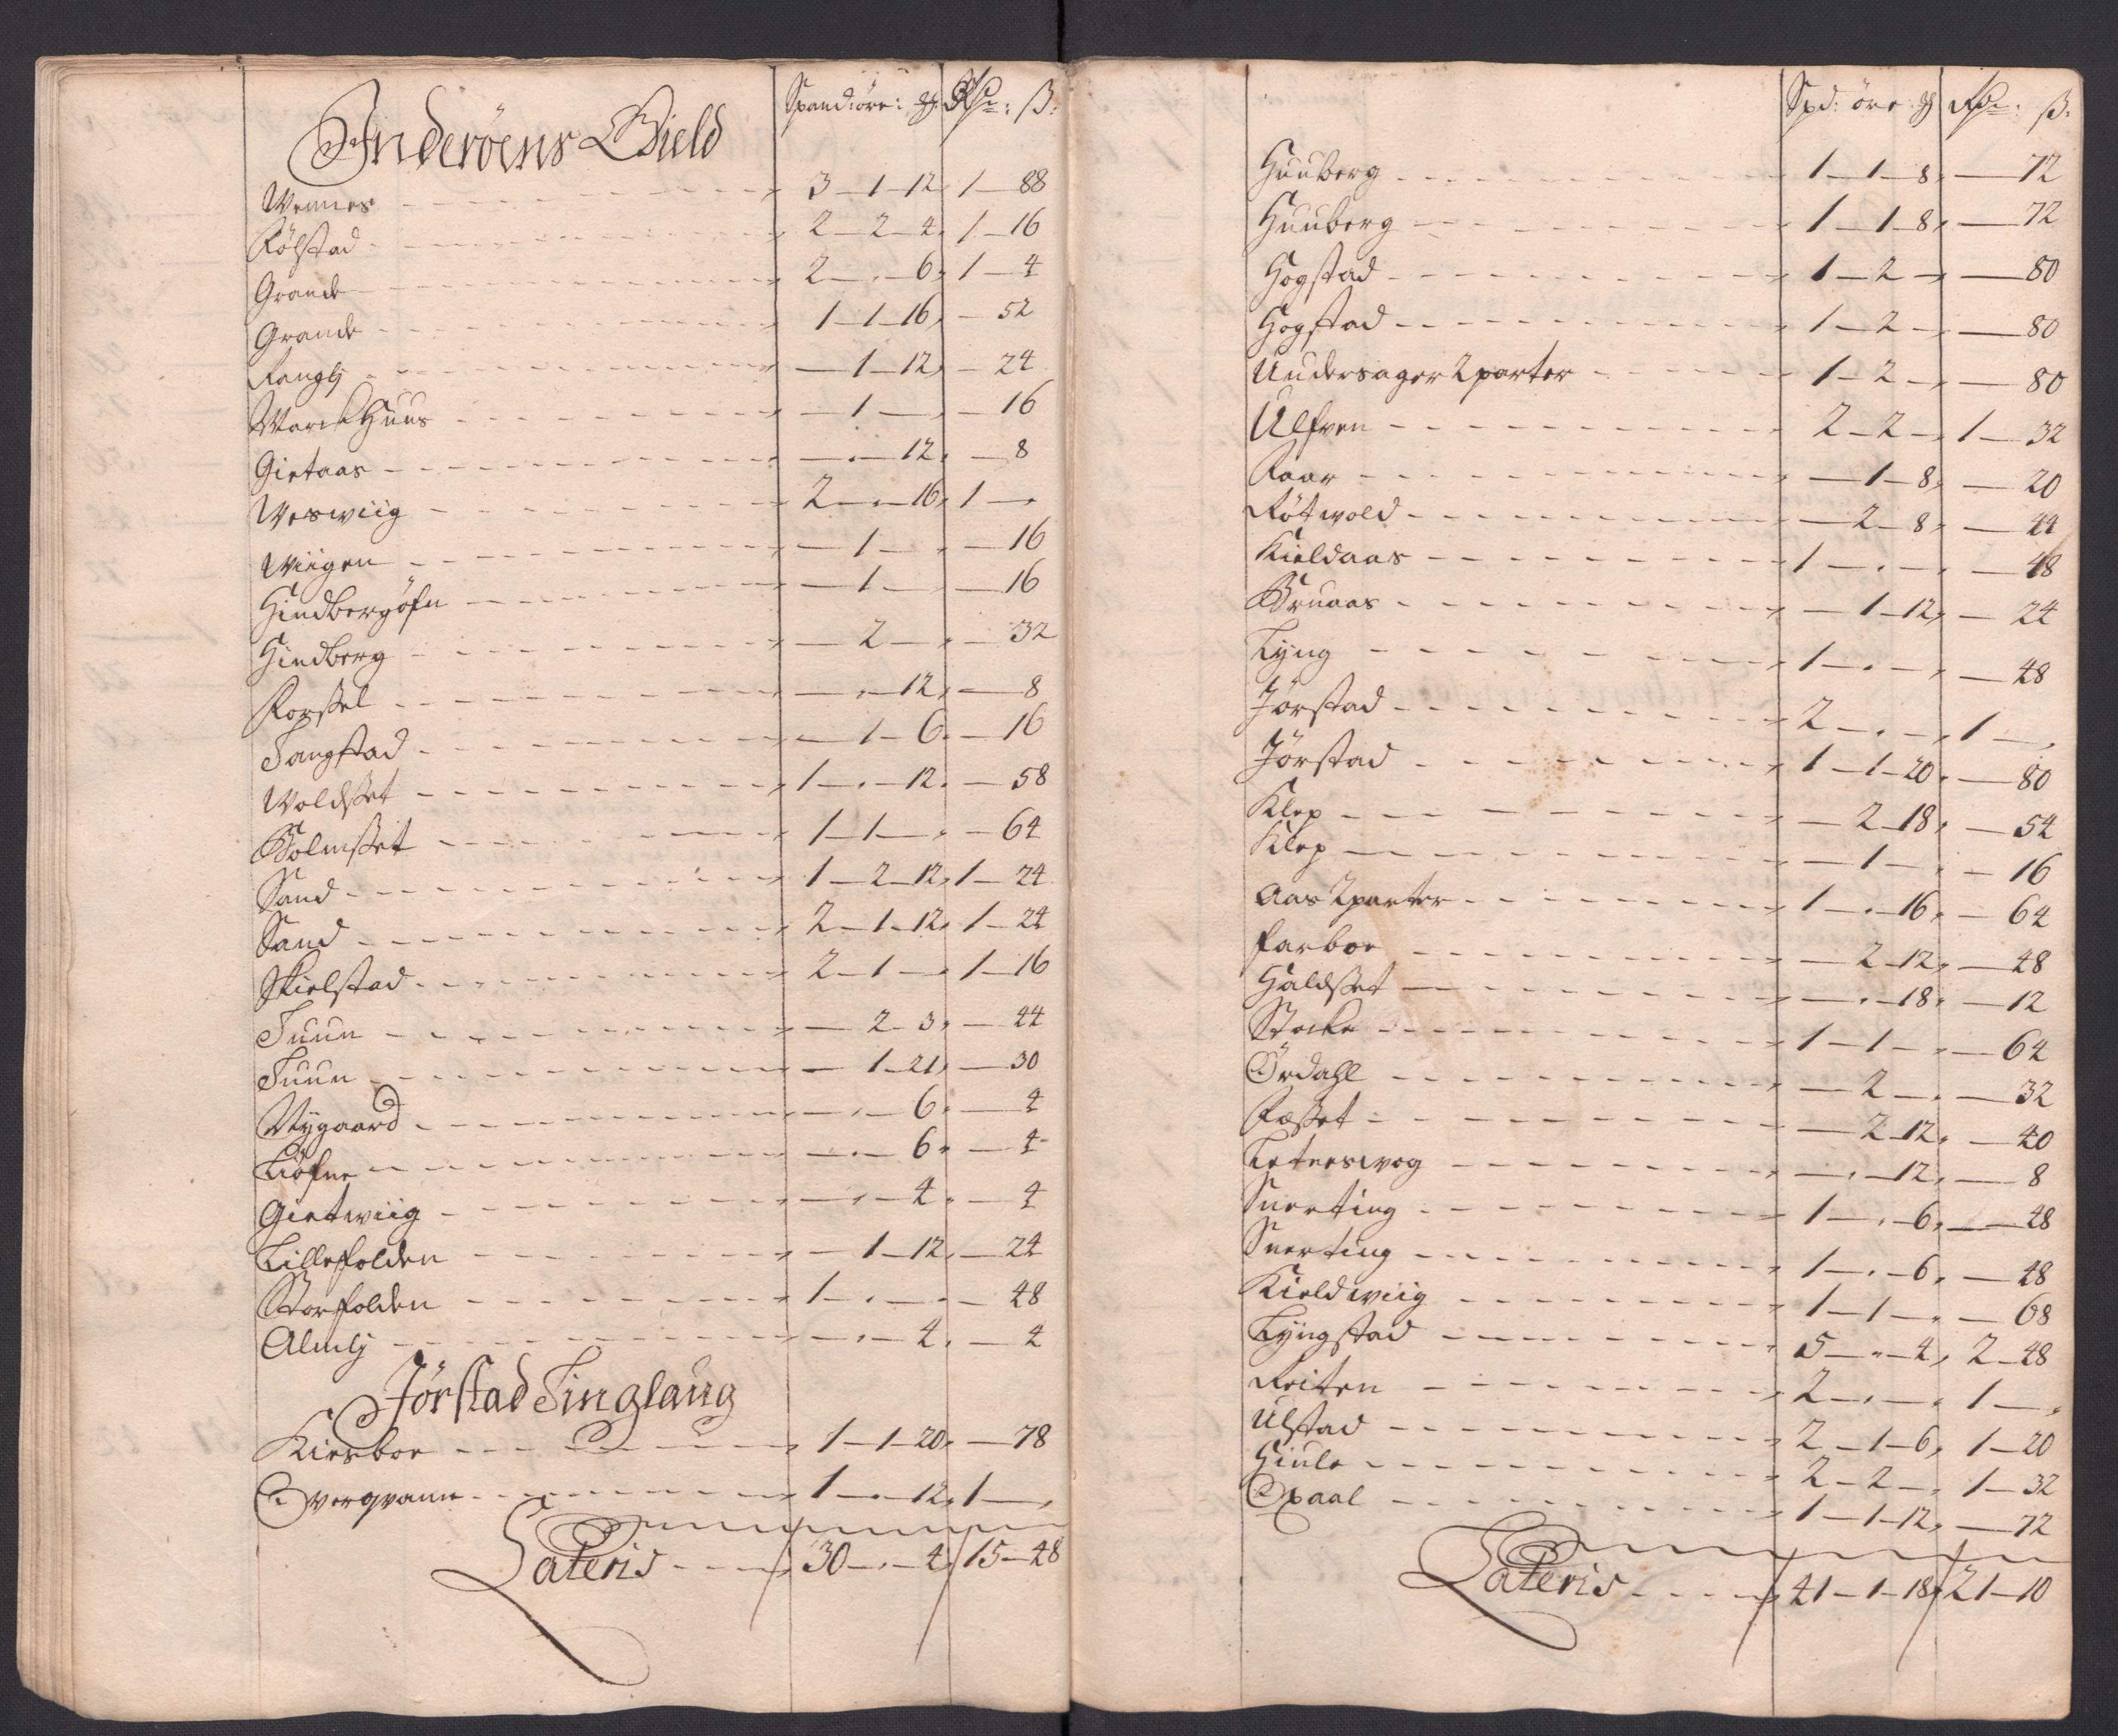 Spand: öre: gl: Rdr: ß:
Inderöens Gield
Wennes 3 – 1 – 12, 1 – 88
Rölstad 2 – 2 – 4, 1 – 16
Grande 2 – . – 6, 1 – 4
Grande 1 – 1 – 16, – 52
Ranglj – 1 – 12, – 24
Marck Huus – 1 – , – 16
Gietaas – . – 12, – 8
Weswiig 2 – . – 16, 1 – .
Wiigen – 1 – . – 16
Hindbergöfn – 1 – , – 16
Hindberg – 2 – , – 32
Forssel – . – 12, – 8
Tangstad – 1 – 6. – 16
Woldsset 1 – . – 12. – 58
Holmsset 1 – 1 – , – 64
Sand 1 – 2 – 12, 1 – 24
Sand 2 – 1 – 12, 1 – 24
Skielstad 2 – 1 – , 1 – 16
Tuun – 2 – 3, – 44
Tuun – 1 – 21, – 30
Nygaard – . – 6, – 4
Liöfne – . – 6, – 4
Gietwiig – . – 4, – 4
Lillefolden – 1 – 12, – 24
Storfolden 1 – . – . – 48
Almlj – . – 4, – 4
Jörstad Tinglaug
Kirsboe 1 – 1 – 20, – 78
Overqvam 1 – . – 12, 1 – ,
Lateris 30 – . – 4, 15 – 48
Spd: öre gl Rdr: ß:
Huuberg 1 – 1 – 8, – 72
Huuberg 1 – 1 – 8, – 72
Hogstad 1 – 2 – , – 80
Hogstad 1 – 2 – , – 80
Undersager 2 parter 1 – 2 – , – 80
Ulfven 2 – 2 – , 1 – 32
Raar – 1 – 8, – 20
Rötwold – 2 – 8, – 44
Kieldaas 1 – . – , – 48
Bruaas – 1 – 12, – 24
Lyng 1 – . – , – 48
Jörstad 2 – . – , 1 – ,
Jörstad 1 – 1 – 20, – 80
Klep – 2 – 18, – 54
Klep – 1 – , – 16
Aas 2 parter 1 – . – 16, – 64
Farboe – 2 – 12, – 48
Haldsset – . – 18, – 12
Stocke 1 – 1 – , – 64
Ördahl – 2 – . – 32
Fosset – 2 – 12, – 40
Leterswog – . – 12, – 8
Snerting 1 – . – 6, – 48
Snerting 1 – . – 6, – 48
Kieldwiig 1 – 1 – , – 68
Lyngstad 5 – . – 4, 2 – 48
Reiten 2 – . – , 1 – ,
Ulstad 2 – 1 – 6, 1 – 20
Hiule 2 – 2 – , 1 – 32
Opaal 1 – 1 – 12, – 72
Lateris 41 – 1 – 18, 21 – 10